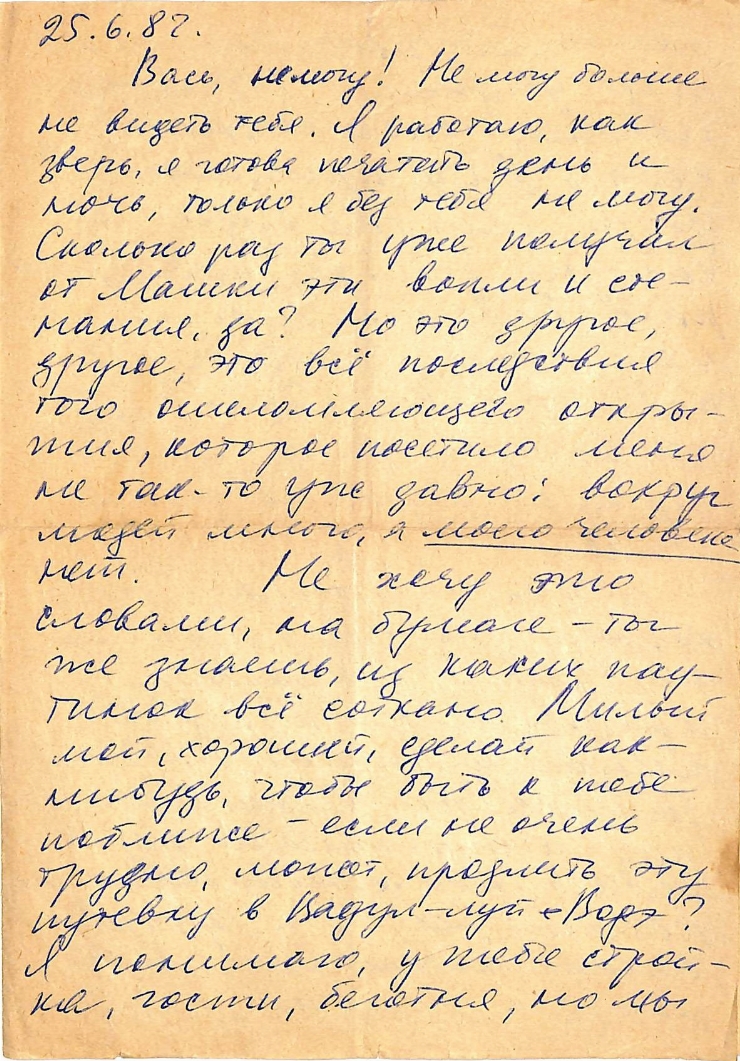 25.6.87.
Вась, не могу! Не могу больше
не видеть тебя. Я работаю, как
зверь, я готова печатать день и
ночь, только я без тебя не могу.
Сколько раз ты уже получал
от Машки эти вопли и сте-
нания, да? Но это другое,
другое, это всё последствия
того ошеломляющего откры-
тия, которое посетило меня
не так-то уж давно: вокруг
людей много, а моего человека
нет. Не хочу это
словами, на бумаге – ты
же знаешь, из каких пау-
тинок всё соткано. Милый
мой, хороший, сделай как-
нибудь, чтобы быть к тебе
поближе – если не очень
трудно, может, продлить эту
путевку в Вадул-луй-Водэ?
Я понимаю, у тебя строй-
ка, гости, беготня, но мы